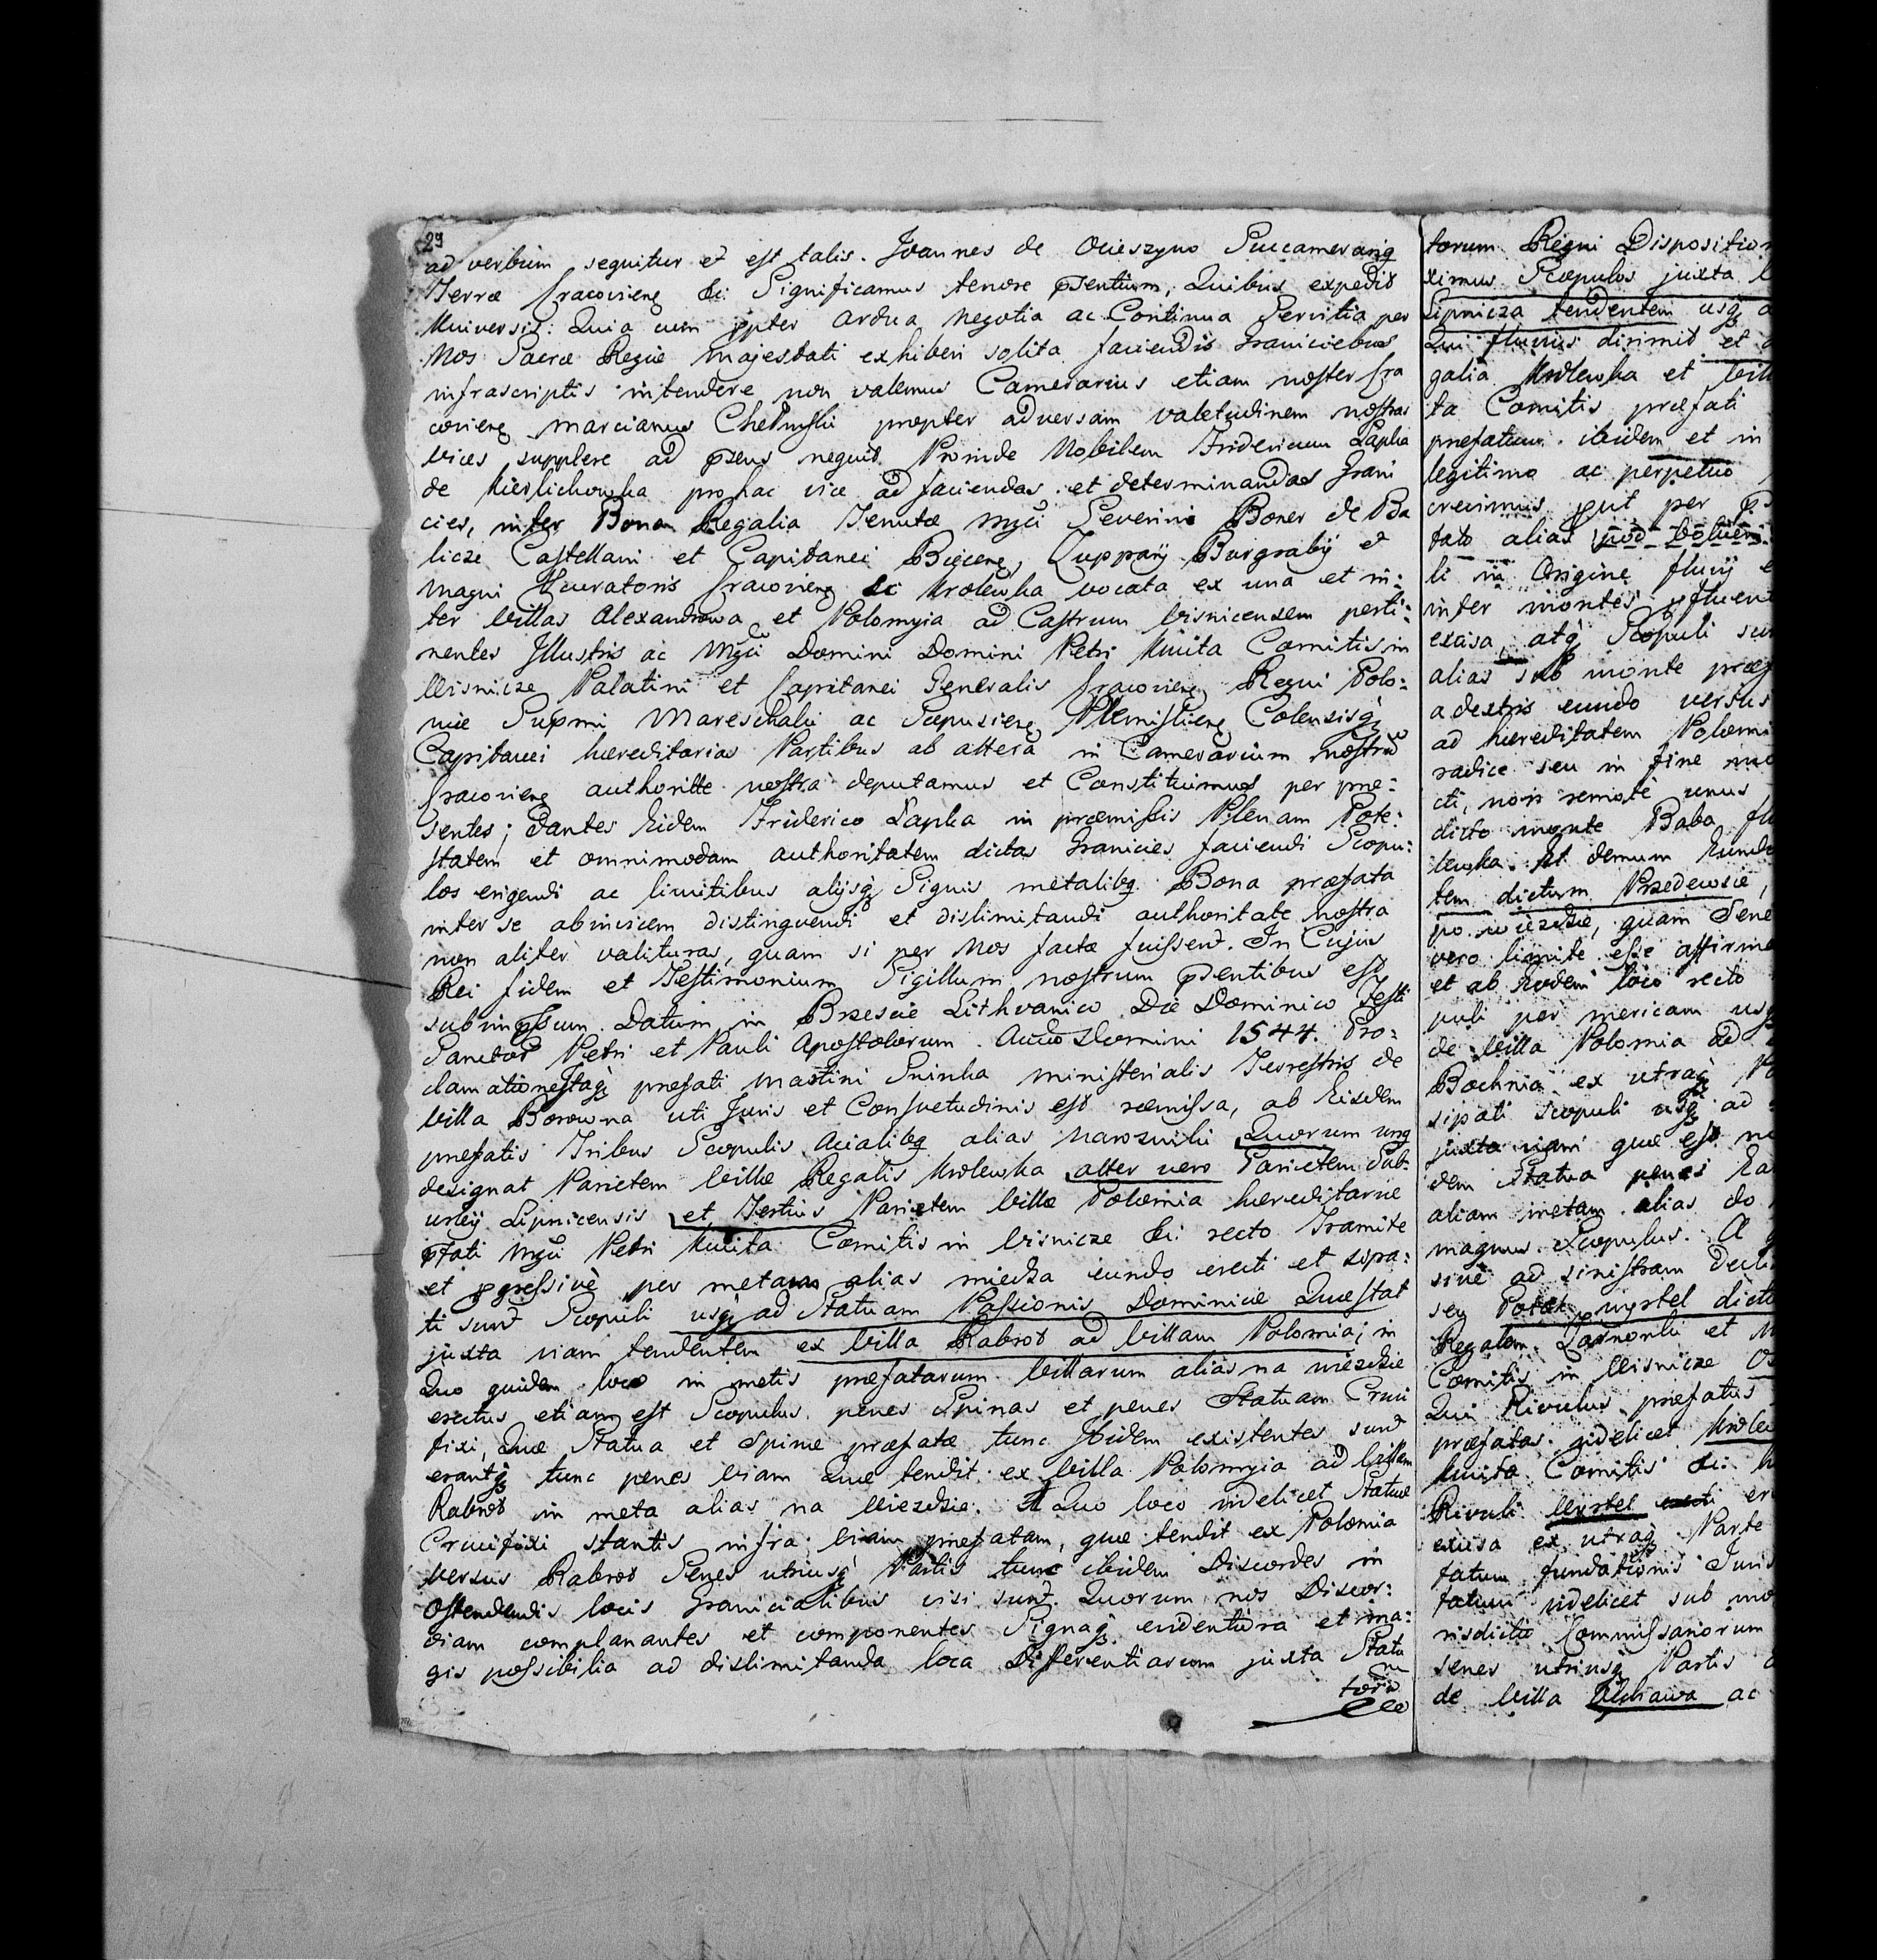 29
ad verbum sequitur et est talis. Joannes de Ocieszyno Succamerariq
Terræ Cracovieng &c: Significamus tenore pñsentium, Quibus expedit
Universis: Quia cum ppter ardua negotia ac Continua Servitia per
Nos Sacræ Regiæ Majestati exhiberi solita faciendis Graniciebus
infrascriptis intendere non valemus Camerarius etiam noster Cra
covieng Marcianus Chełmski propter adversam valetudinem nostras
vices supplere ad psens nequit. Proinde Nobilem Fridericum Łapka
de Kierlichowka pro hac vice ad faciendas et determinandas Grani
cies, inter Bona Regalia Tenutæ Mgci Severini Boner de Ba
licze Castellani et Capitanei Bieceng, Zupparij Burgrabij et
magni Pcuratoris Cracovieng &c Krolewka vocata ex una et in:
ter villas Alexandrowa et Polomyia ad Castrum Visnicensem perti:
nentes Illustris ac Mgci Domini Domini Petri Kmita Comitis in
Visnicze Palatini et Capitanei Generalis Cracovieng Regni Polo:
niæ Supmi Mareschalci ac Scepusieng Plemistieng Colensisq
Capitanei hæreditarias Partibus ab altera in Camerarium nostrũ
Cracovieng authoritte nostra deputamus et Constituimus per præ:
sentes; Dantes Eidem Friderico Łapka in præmissis Plenam Pote:
statem et omnimodam authoritatem dictas Granicies faciendi Scopu:
los erigendi ac limitibus alijsq Signis metalibq Bona præfata
inter se abinvicem distinguendi et dislimitandi authoritate nostra
non aliter valituras, quam si per Nos factæ fuissent. In Cujus
Rei fidem et Testimonium Sigillum nostrum psentibus est
subimpssum. Datum in Brzescie Lithvanico Die Dominico Festi
Sanctor Petri et Pauli Apostolorum. Anno Domini 1544. Pro:
clamationeq præfati Martini Sninka ministerialis Terrestris de
villa Borowna uti Juris et Consvetudinis est remissa, ab Eisdem
præfatis Tribus Scopulis Acialibq alias Narozniki Quorum unq
designat Parietem Villæ Regalis Krolewka alter vero Parietem Sub:
urbij Lipnicensis et Tertius Parietem villæ Polomia hæreditariæ
pfati Mgci Petri Kmita Comitis in Visnicze &c: recto Tramite
et pgressivè per metam alias miedza eundo erecti et sipa:
ti sunt Scopuli usq ad Statuam Passionis Dominicæ Quæ stat
juxta viam tendentem ex villa Rabrot ad villam Polomia; in
Quo quidem loco in metis præfatarum villarum alias na mieszkie
erectus etiam est Scopulus penes Spinas et penes Statuam Cruci
fixi, Quæ Statua et Spinæ præfatæ tunc Ibidem existentes sunt
erantq tunc penes viam Quæ tendit ex villa Polomyia ad villam
Rabrot in meta alias na Miedzie. A Quo loco videlicet Statuæ
Crucifixi stantis infra viam præfatam, quæ tendit ex Polomia
versus Rabrot Senes utriusq Partis tunc ibidem Discordes in
Ostendendis locis Granicialibus visi sunt. Quorum nos Discor:
diam complanantes et componentes Signaq evidentiora et ma:
gis possibilia ad dislimitanda loca Differentiarum juxta Statu
torũ
torum Regni Disposition
ximus Scopulos juxta
Lipnicza tendentem usq
Qui fluvius dirimit et
galia Krolewka et
ta Comitis præfati
præfatum ibidem et in
legitimo ac perpetuo
crevimus put per
dato alias
li in Origine fluvij
inter montes pfluent
excisa, atq Scopuli
alias sub monte præ
a dextris eundo versus
ad hæreditatem Polomi
radice seu in fine
cti, non remotè unus
dicto monte Baba
lewka. Et demum Eundo
tem dictum Przedewsie,
po miezdzie, quam Sene
vero limite esse affirma
et ab Eodem loco recto
puli per mericam usq
de villa Polomia ad
Bochnia ex utraq
sipati scopuli usq ad
juxta viam quæ est
dem Statua penes
aliam metam alias do
magnus Scopulus. A
sive ad sinistram
seu Potok Uystel dicto
Regalem et
Comitis in Visnicze
Qui Rivulus præfatus
præfatas videlicet
Kmita Comitis &c:
Rivuli Uystel
excisa ex utraq Parte
fatum fundationis Juris
fatum videlicet sub mo
risdictio Commissariorum
senes utriusq Partis
de villa ac